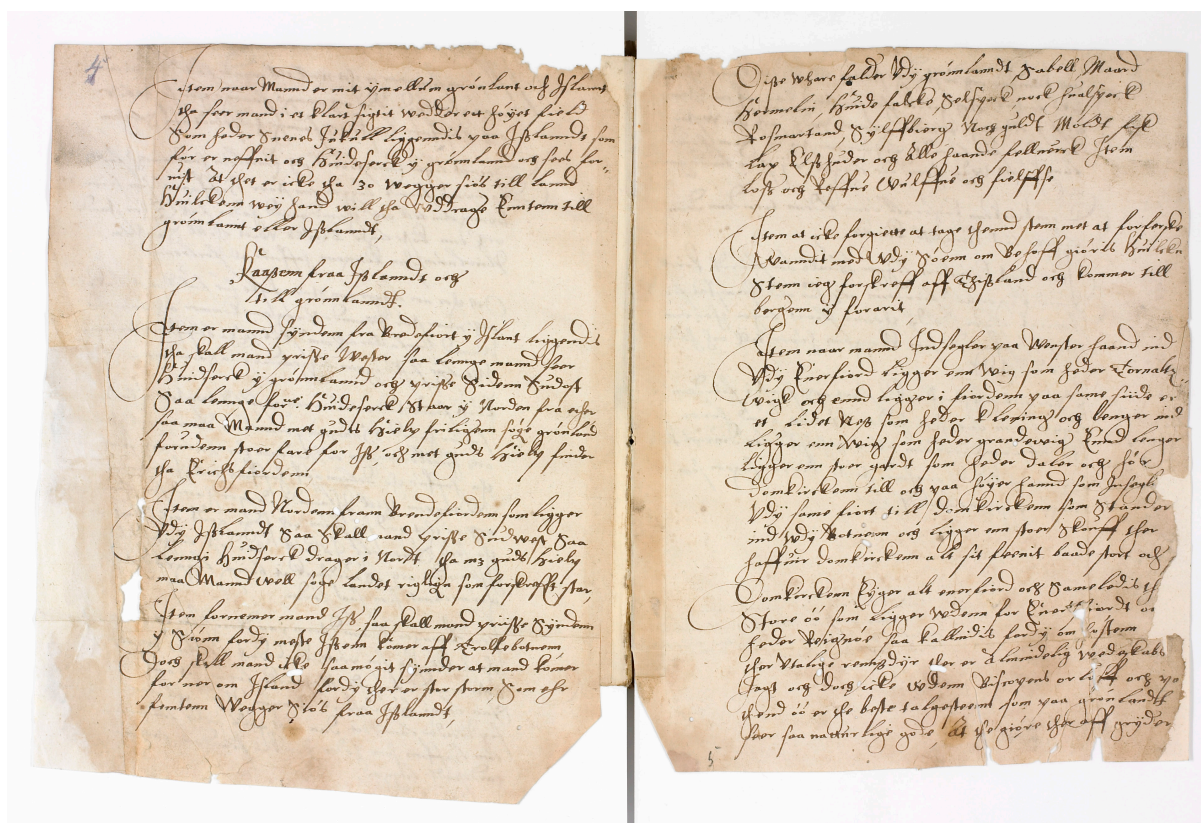 4
Item naar Mannd er mit ymellum grönlant och Ißlannt
tha seer mand i et klart sigtit wedder ett höyet field
Som heder Snenes Jukull liggendis paa Ißlanndt som
för er neffnit och Huideserck y grönnlannd och sees for
nist at thet er icke tha 30 wegger siös till lannd
Huilckenn wey hand will tha wddrage Enntenn till
grönnlannt eller Ißlanndt,
Kaaßenn fraa Ißlanndt och
till grönnlanndt.
Item er mannd synden fra Bredefiort y Islant liggendis
tha skall mand priiße Wester saa lennge mannd seer
Huidserck y grönnlannd och priiße siden Sudost
Saa lennge for.ne Huideserck staar y Norden fra ehr
saa maa Mannd met guds hielp friligenn söge grönland
forudenn stoer fare for Iß, och met guds hielp finder
tha Erichsfiordenn
Item er mand Nordenn fraan Bredefiordenn som ligger
vdy Ißlanndt Saa skall mand priiße Sudwest Saa
lennge Huidserck drager i Nordt tha mz guds hielp
maa Mannd well söge landet rigligen som forskrefft star,
Item fornemer mand Iß saa skall mand priiße Synden
y Siönn fordy meste Isenn komer aff Trolsebotnen
Doch skall mand icke saa mögit synder at mand komer
for ner om Island fordy ther er stor storm, Som ehr
femtenn Wegger Siös fraa Ißlanndt,
Diße whare falder vdy grönnlanndt Sabell Maard
Hermelin, Huide falcke Selspeck nock hualspeck
Rosmartand Sylffbierg Noch guldt Moldt fisk
lax Elßhuder och alle haande fellwerck Item
loß och Reffue Wulffue och fielffße
Item at icke forgiette at tage thennd steen met at forferske
Wanndit med wdy Söenn om Behoff giöris Huilcken
Steen ieg forskreff aff Thißland och kommer till
bergenn y foraarit,
Item naar mannd Indsegler paa Wenster haand ind
vdy Enerfiord ligger enn wig som heder Tornalß=
wigk och ennd ligger i fiordenn paa same siide er
et lidet Neß som heder Klening och lenger ind
ligger enn wig som heder grandewig Ennd lenger
ligger enn stoer gardt som heder daler och hör
Domkirckenn till och paa höyer hannd som Insegler
vdy same fiort till Domkirckenn som Stander
ind wdy Botnenn och ligger enn stor Skouff ther
haffuir domkirckenn alt sit feenit baade stort och
Domkirckenn Eyger alt enerfiord och Sameledis th
Store öö som ligger wdenn for Enerfiordt oc
heder Reignöe saa kalludis fordy om hostenn
ther vtalige reinsdyr ther er Almindelig wedeskabs
iagt och doch icke wdenn Biscopens orloff och po
thend öö er the beste talgesteenn som paa grönlandt
seer saa naturlige gode, at the giöre ther aff gryder
5